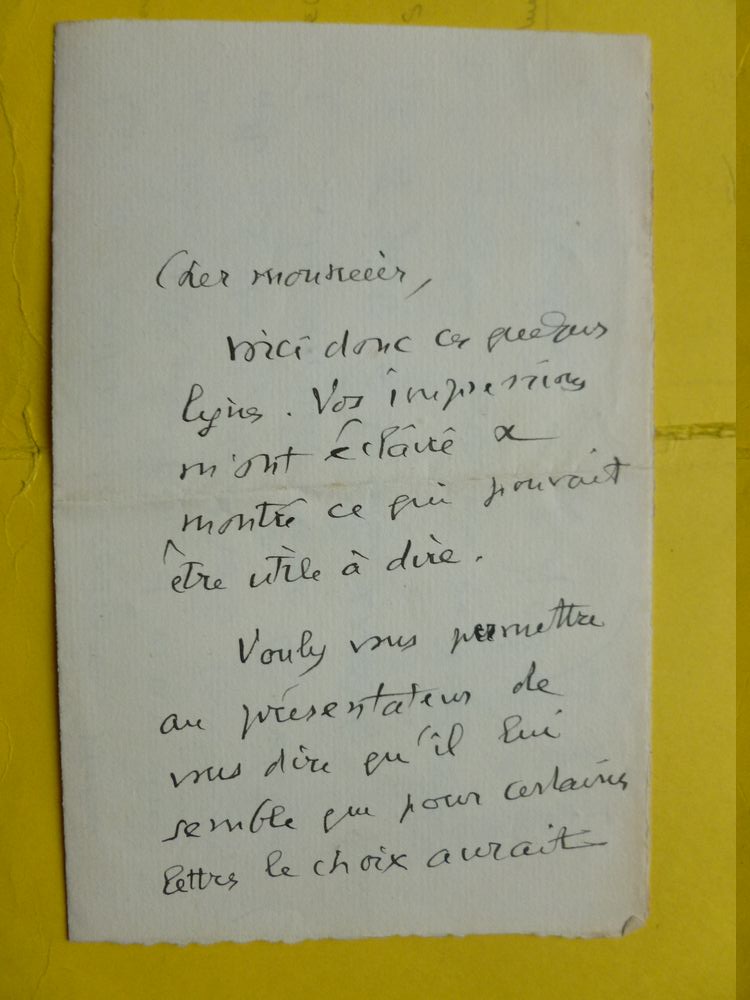 Cher monsieur,
Voici donc ces quelques
lignes. Vos impressions
m'ont éclairé &
montré ce qui pouvait
être utile à dire.
Voulez vous permettre
au présentateur de
vous dire qu'il lui
semble que pour certaines
lettres le choix aurait